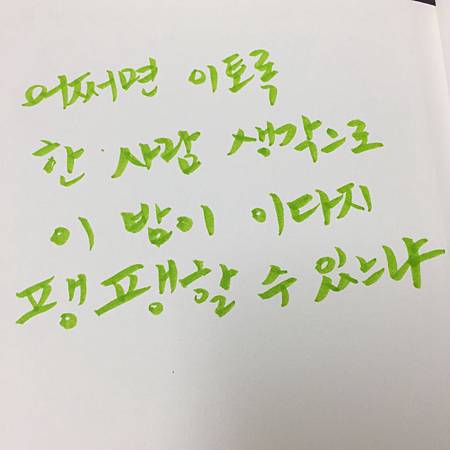 어쩌면 이토록
한 사람 생각으로
이 밤이 이다지
팽팽할 수 있느냐